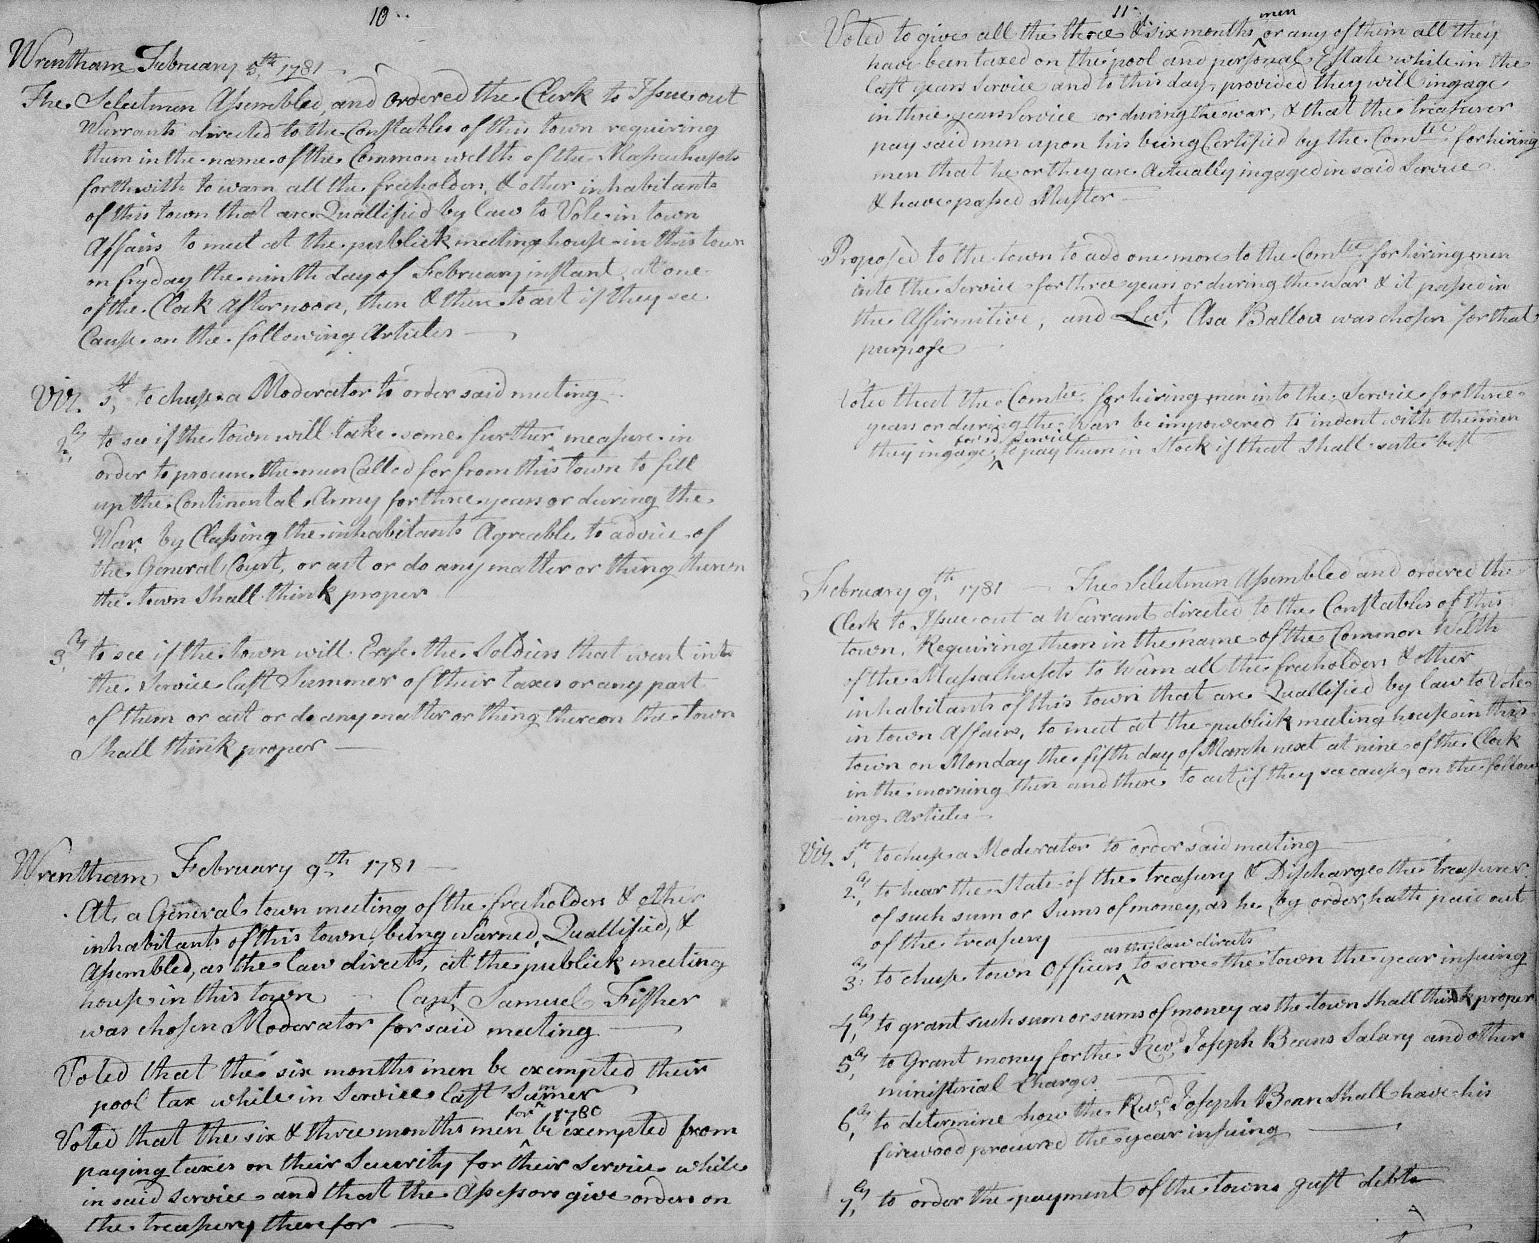 10
Wrentham February 5,th 1781
The Selectmen Assembled and ordered the Clerk to Issue out
Warrants directed to the Constables of this town requiring
them in the name of the Common welth of the Massachusets
forthwith to warn all the freeholders, & other inhabitants
of this town that are Quallified by law to Vote in town
Affairs to meet at the publick meeting house in this town
on fryday the ninth day of February instant, at one
of the Clock afternoon, then & there to act if they see
Cause on the following Articles
Viz. 1,st to chuse a Moderator to order said meeting
2,ly to see if the town will take some further measure in
order to procure the men Called for from this town to fill
up the Continental Army for three years or during the
War, by Classing the inhabitants Agreable to advice of
the General Court, or act or do any matter or thing thereon
the town Shall think proper
3,ly to see if the town will Ease the Soldiers that went into
the Service last Summer of their taxes or any part
of them or act or do any matter or thing thereon the town
Shall think proper
Wrentham February 9,th 1781
At a General town meeting of the freeholders & other
inhabitants of this town, being Warned, Quallified, &
Assembled, as the law directs, at the publick meeting
house in this town Capt, Samuel Fisher
was chosen Moderator for said meeting
Voted that the six months men be exempted their
pool tax while in Service last Sumer
for 1780
Voted that the six & three months men be exempted from
paying taxes on their Security for their Service while
in said Service and that the Assessors give orders on
the treasury therefor
11
men
Voted to give all the three & six months or any of them all they
have been taxed on the pool and personal Estate while in the
last years Service and to this day, provided they will ingage
in three years Service or during the war, & that the treasurer
pay said men upon his being Certified by the Comtee for hiring
men that he or they are Actually ingaged in said Service
& have passed Muster
Proposed to the town to add one more to the Comtee for hiring men
into the Service for three years or during the War & it passed in
the Affirmitive, and Lut, Asa Ballou was chosen for that
purpose
Voted that the Comtee for hiring men into the Service for three
years or during the War be impowered to indent with the men
for sd Service
they ingage to pay them in Stock if that Shall sute best
February 9,th 1781 The Selectmen Assembled and ordered the
Clerk to Issue out a Warrant directed to the Constables of this
town, Requiring them in the name of the Common Welth
of the Massachusets to Warn all the freeholders & other
inhabitants of this town that are Quallified by law to Vote
in town Affairs, to meet at the publick meeting house in this
town on Monday the fifth day of March next at nine of the Clock
in the morning then and there to act if they see cause, on the follow
ing Articles
Viz. 1,st to chuse a Moderator to order said meeting
2,ly to hear the State of the treasury & Discharge the treasurer
of such sum or Sums of money, as he, by order, hath paid out
of the treasury
as the law directs
3,ly to chuse town Officers to serve the town the year insuing
4,ly to grant such sum or sums of money as the town Shall think proper
5,ly to Grant money for the Revd Joseph Beans Salary and other
ministerial Charges
6,ly to determine how the Revd, Joseph Bean Shall have his
firewood procured the year insuing
7,ly to order the payment of the towns just debts